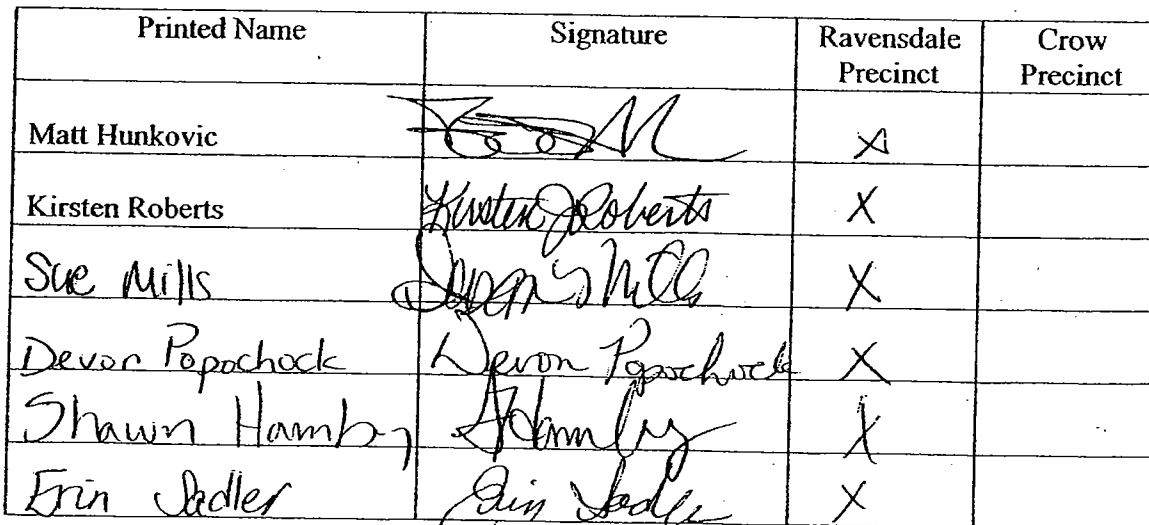 Printed Name Signature Ravensdale Precinct Crow Precinct
Matt Hunkovic X
Kirsten Roberts Kirsten J Roberts X
Sue Mills Mills X
Devon Popochock Devon Popochock X
Shawn Hamby SHamby X
Erin Sadler Erin Sadler X